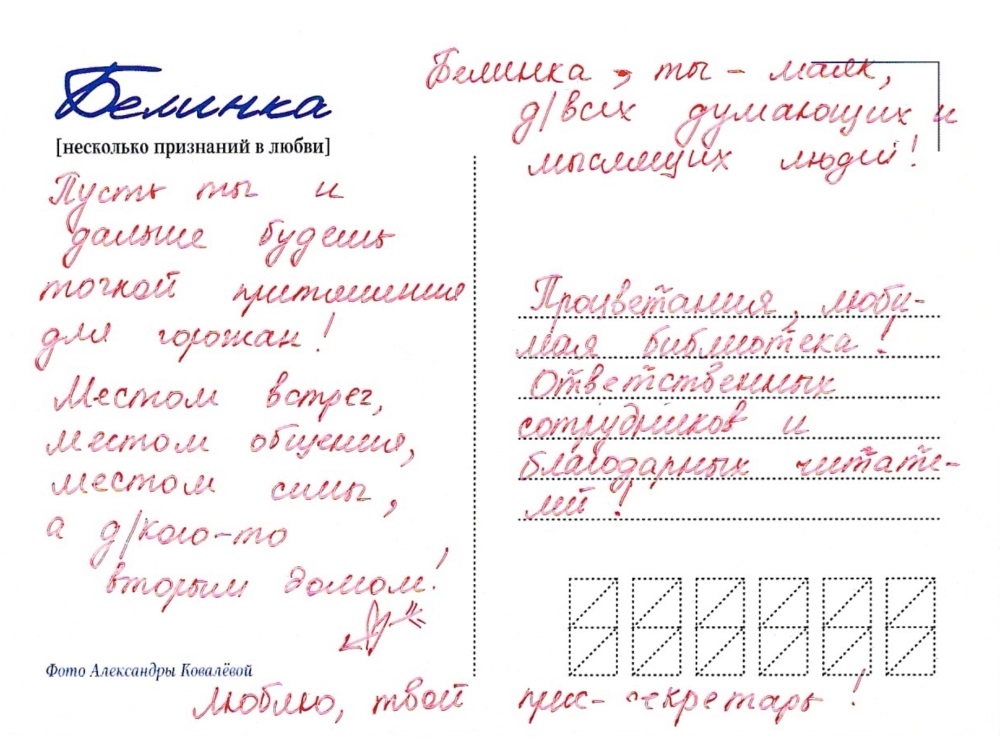 Белинка
[несколько признаний в любви]
Белинка, ты - маяк,
д/всех думающих и
мыслящих людей!
Пусть ты и
дальше будешь
точкой притяжения
для горожан!
Местом встреч,
местом общения,
местом силы,
а д/кого-то
вторым домом!
Процветания, люби-
мая библиотека!
Ответственных
сотрудников и
благодарных читате-
лей!
Фото Александры Ковалёвой
Люблю, твой пресс-секретарь!